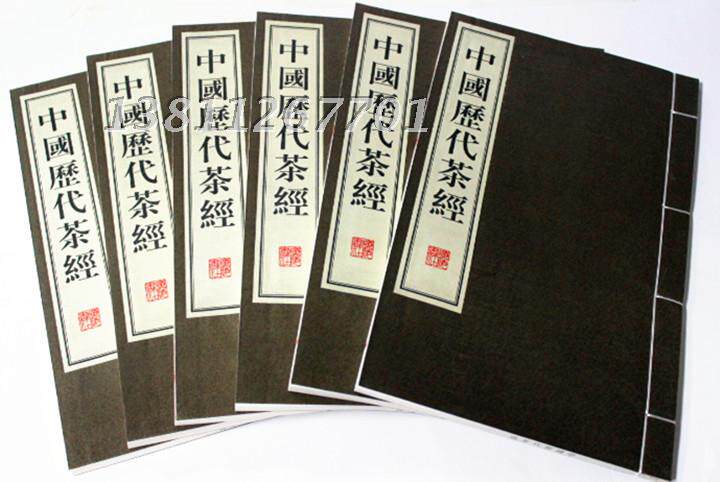 中國歷代茶經
中國歷代茶經
中國歷代茶經
中國歷代茶經
中國歷代茶經
中國歷代茶經
13811267701